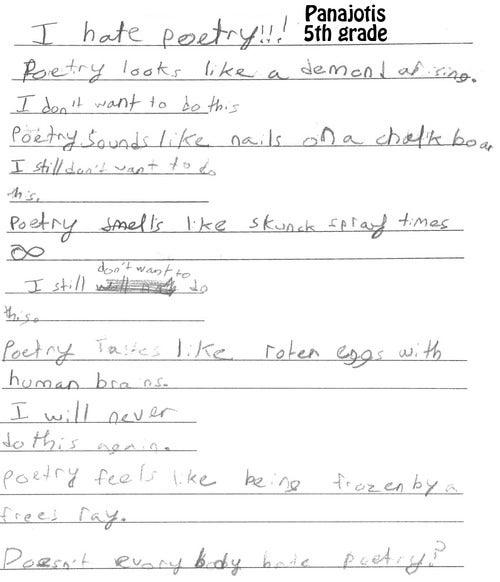 I hate poetry!!! Panajotis
5th grade
Poetry looks like a demond arising.
I don't want to do this
Poetry Sounds like nails on a chalk boar
I still don't want to do
this.
Poetry smells like skunck spray times
∞
don't want to
I still do
this.
Poetry Tastes like roten eggs with
human brains.
I will never
do this again.
Poetry feels like being frozen by a
freez ray.
Doesn't every body hate poetry?